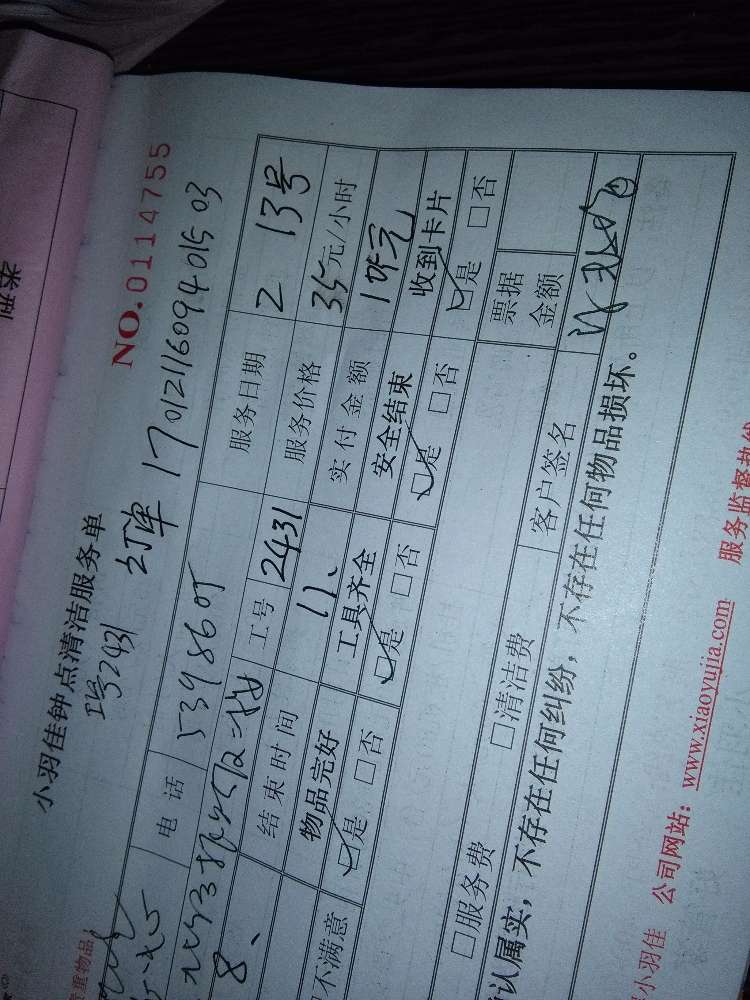 类别
小羽佳钟点清洁服务单
NO.0114755
工号2431 订单 17012116094015 03
贵重物品
电话 5398605 服务日期 2 13号
工号 2431 服务价格 35元/小时
8、 结束时间 11、 实付金额 105元
物品完好 工具齐全 安全结束 收到卡片
不满意 ☑是 □否 ☑是 □否 ☑是 □否 ☑是 □否
□服务费 □清洁费 票据金额
客户签名
认属实，不存在任何纠纷，不存在任何物品损坏。
小羽佳 公司网站：www.xiaoyujia.com 服务监督热线